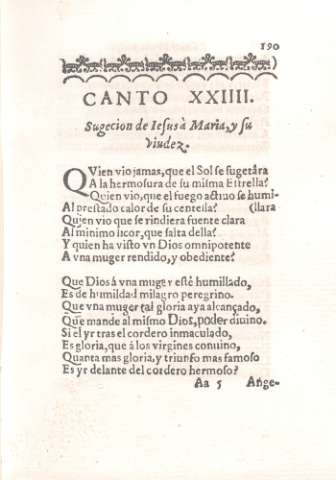 190
CANTO XXIIII.
Sugecion de Iesus à Maria, y su
viudez.
QVien vio jamas, que el Sol se sugetàra
A la hermosura de su misma Estrella?
Quien vio, que el fuego actiuo se humi-
Al prestado calor de su centella? (llara
Quien vio que se rindiera fuente clara
Al minimo licor, que salta della?
Y quien ha visto vn Dios omnipotente
A vna muger rendido, y obediente?
Que Dios à vna muger estè humillado,
Es de humildad milagro peregrino.
Que vna muger tal gloria aya alcançado,
Que mande al mismo Dios, poder diuino.
Si el yr tras el cordero inmaculado,
Es gloria, que à los virgines conuino,
Quanta mas gloria, y triunfo mas famoso
Es yr delante del cordero hermoso?
Aa 5 Ange-